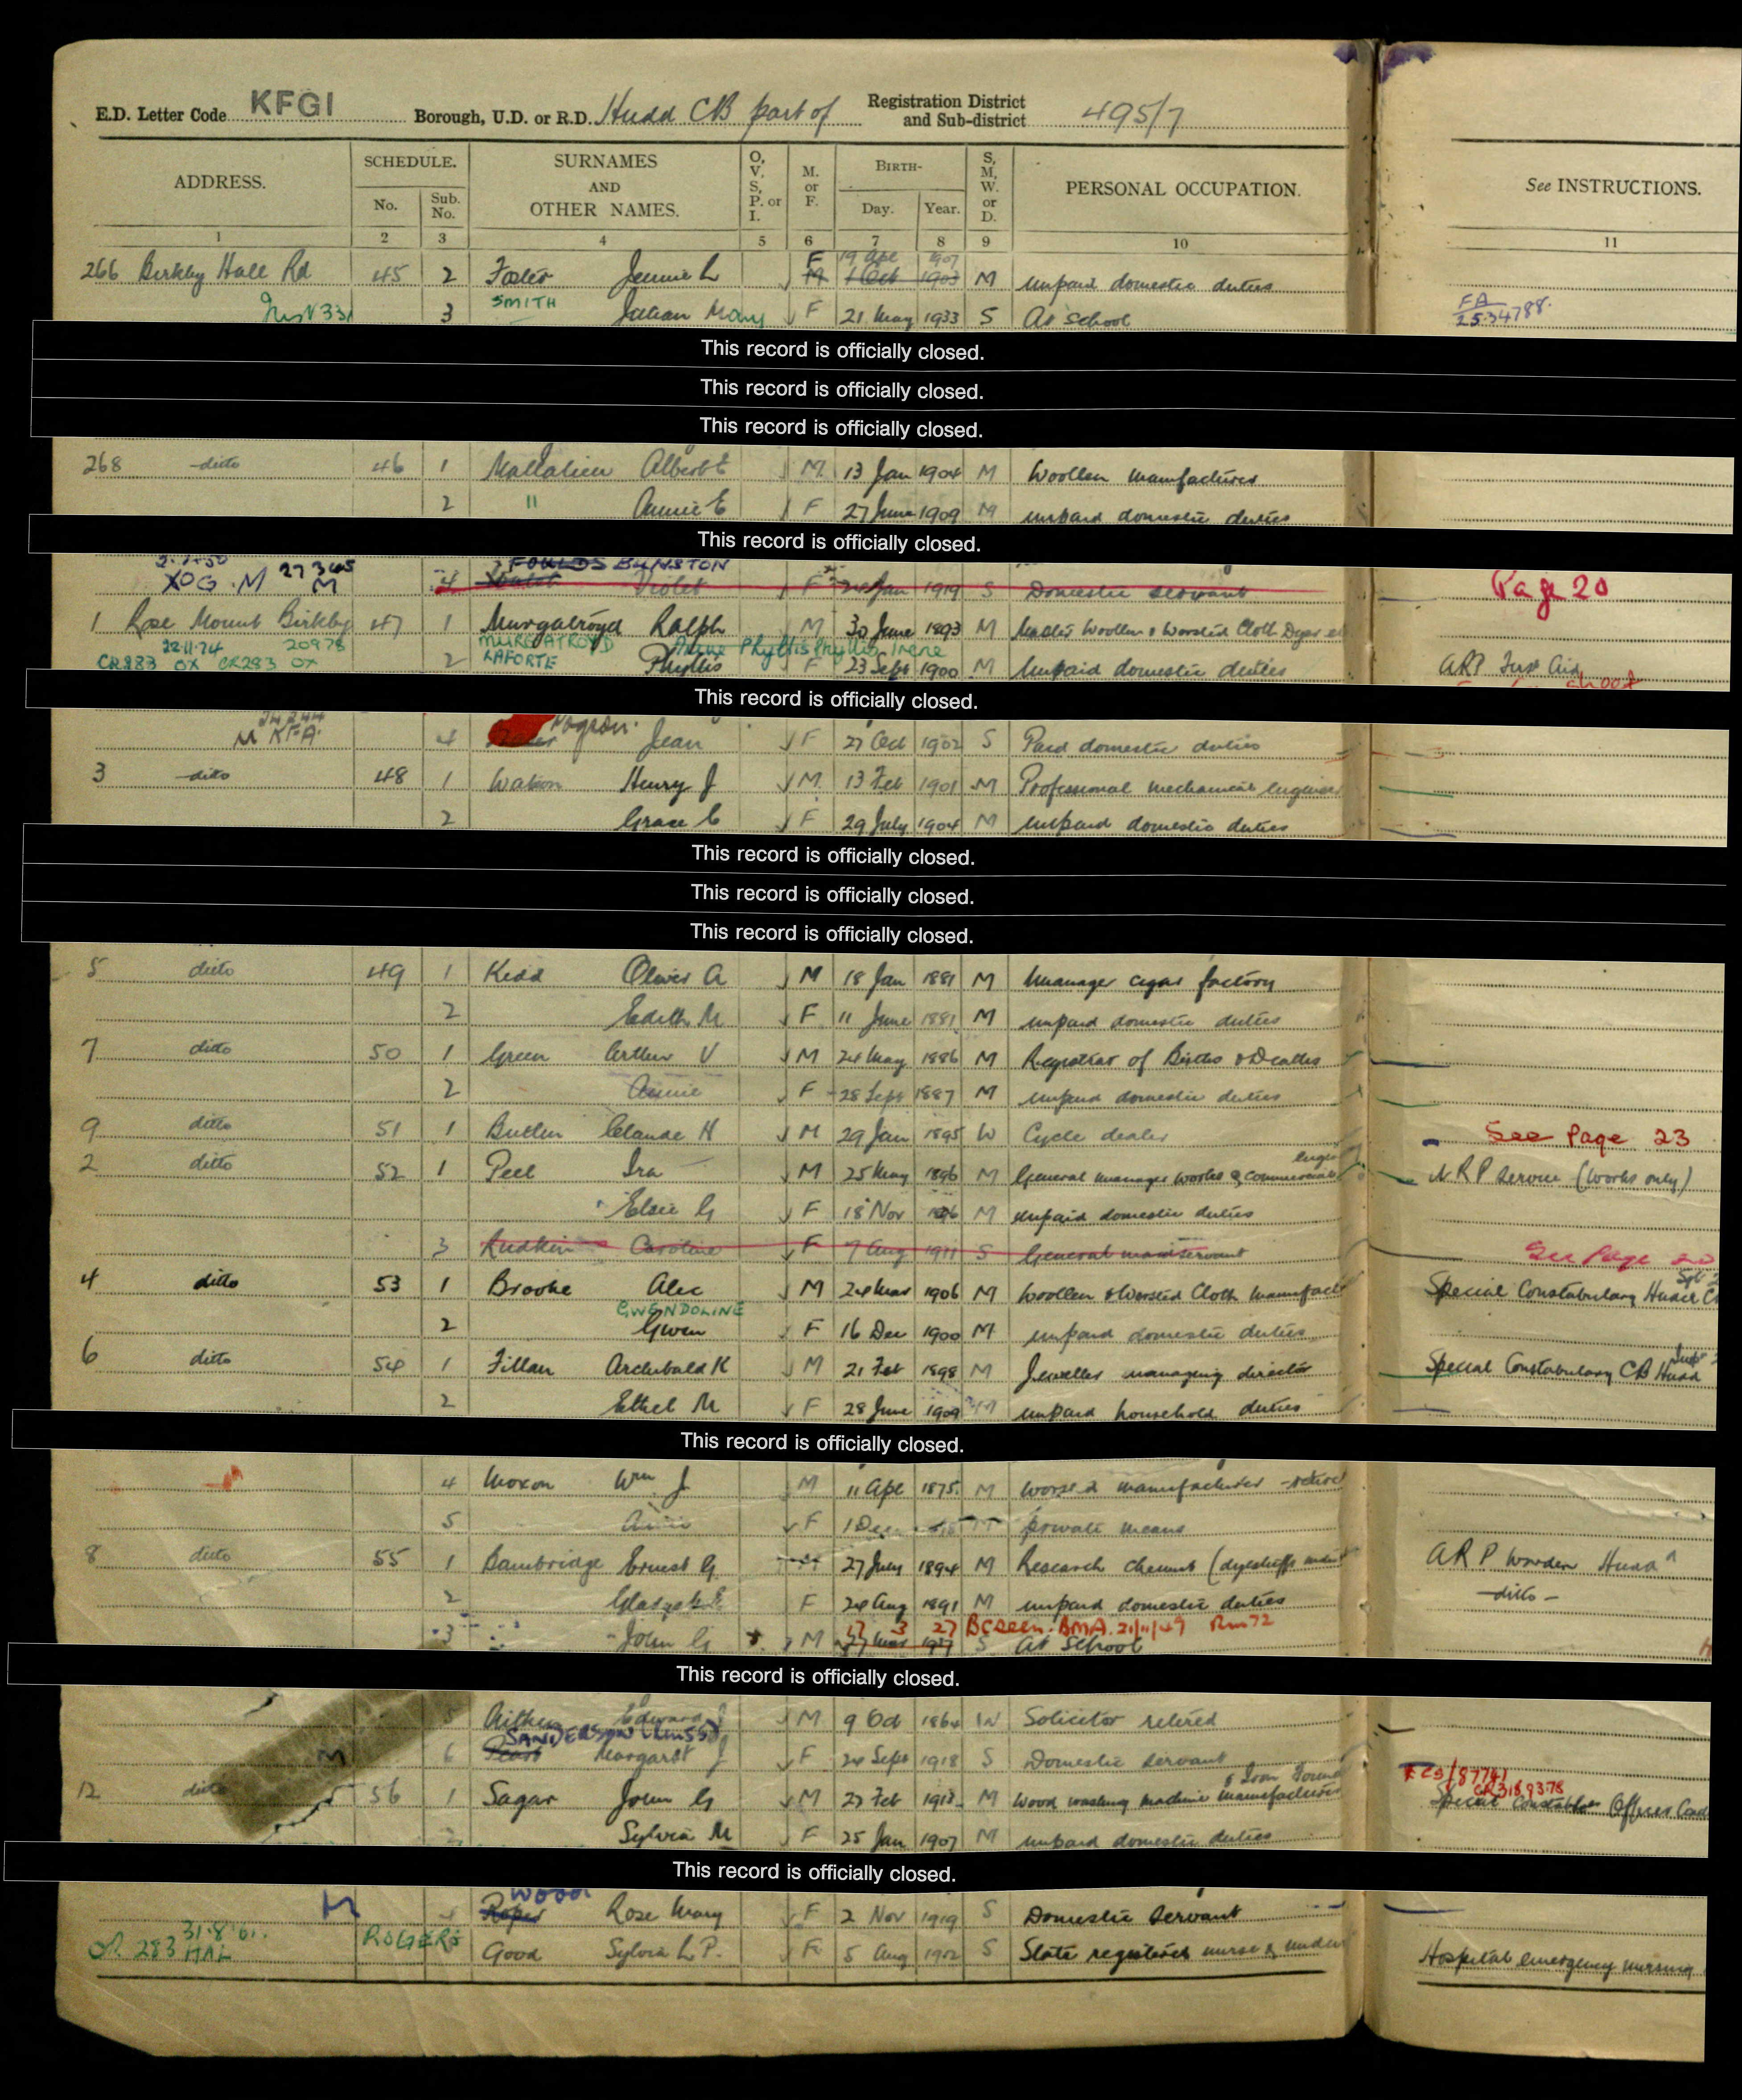 E.D. Letter Code KFGI Borough, U.D. or R.D. Hudd CB part of Registration District and Sub-district 495/7
ADDRESS. SCHEDULE. No. Sub. No. SURNAMES AND OTHER NAMES. O, V, S, P. or I. M. or F. BIRTH- Day. Year. S, M, W. or D. PERSONAL OCCUPATION. See INSTRUCTIONS.
1 2 3 4 5 6 7 8 9 10 11
F 19 Apl 1907
266 Birkby Hall Rd 45 2 Foster Jennie L M 1 Oct 1903 M unpaid domestic duties
SMITH
3 Julian Mary F 21 May 1933 S At school FA 2534788.
This record is officially closed.
This record is officially closed.
This record is officially closed.
268 ditto 46 1 Mallalieu Albert E M 13 Jan 1904 M Woollen manufacturer
2 " Annie E F 27 June 1909 M unpaid domestic duties
This record is officially closed.
FOULDS BUNSTON
XOG.M 27345 M 4 Violet F Jan 1919 S Domestic servant Page 20
1 Rose Mount Birkby 47 1 Murgatroyd Ralph M 30 June 1893 M Master Woollen & Worsted Cloth Dyer
22.11.74 20978 MURGATROYD Irene Phyllis Phyllis Irene
CR283 OX CR283 OX 2 LAFORTE Phyllis F 23 Sept 1900 M Unpaid domestic duties ARP First Aid
This record is officially closed.
M KFA 4 Jean F 27 Oct 1902 S Paid domestic duties
3 ditto 48 1 Watson Henry J M 13 Feb 1901 M Professional mechanical Engineer
2 Grace C F 29 July 1904 M unpaid domestic duties
This record is officially closed.
This record is officially closed.
This record is officially closed.
5 ditto 49 1 Kidd Oliver A M 18 Jan 1881 M Manager cigar factory
2 Edith M F 11 June 1881 M unpaid domestic duties
7 ditto 50 1 Green Arthur V M 24 May 1886 M Registrar of Births & Deaths
2 Annie F 28 Sept 1887 M unpaid domestic duties
9 ditto 51 1 Butler Claude H M 29 Jan 1895 W Cycle dealer See Page 23
2 ditto 52 1 Peel Ira M 25 May 1896 M General manager works & commercial ARP service (works only)
Elsie G F 18 Nov M unpaid domestic duties
3 Rudkin Caroline F 7 Aug 1911 S General maidservant See Page 20
4 ditto 53 1 Brooke Alec M 24 Mar 1906 M Woollen & Worsted Cloth Manufact Special Constabulary Hudd C
GWENDOLINE
2 Gwen F 16 Dec 1900 M unpaid domestic duties
6 ditto 54 1 Fillan Archibald K M 21 Feb 1898 M Jeweller managing director Special Constabulary CB Hudd
2 Ethel M F 28 June 1909 M unpaid household duties
This record is officially closed.
4 Moxon Wm J M 11 Apl 1875 M Worsted manufacturer - retired
5 Annie F 1 Dec private means
8 ditto 55 1 Bambridge Ernest G 27 July 1894 M Research Chemist (dyestuffs ARP Warden Hudd
2 Gladys E F 24 Aug 1891 M unpaid domestic duties ditto -
17 3 27 BC seen. BMA. 21/11/47 Rm 72
3 John G M 27 Mar 1927 S At School
This record is officially closed.
Aitken Edward J M 9 Oct 1864 W Solicitor retired
SANDERSON (MISS)
6 Margaret J F 24 Sept 1918 S Domestic servant
& Iron Found
12 ditto 56 1 Sagar John G M 27 Feb 1913 M Wood washing machine manufacturer Special Constable Officer Cad
Sylvia M F 25 Jan 1907 M unpaid domestic duties
This record is officially closed.
WOOD
M 4 Roper Rose Mary F 2 Nov 1919 S Domestic Servant
31.8.61. ROGERS
283 HAL Good Sylvia L P. F 5 Aug 1902 S State registered nurse & Hospital emergency nursing